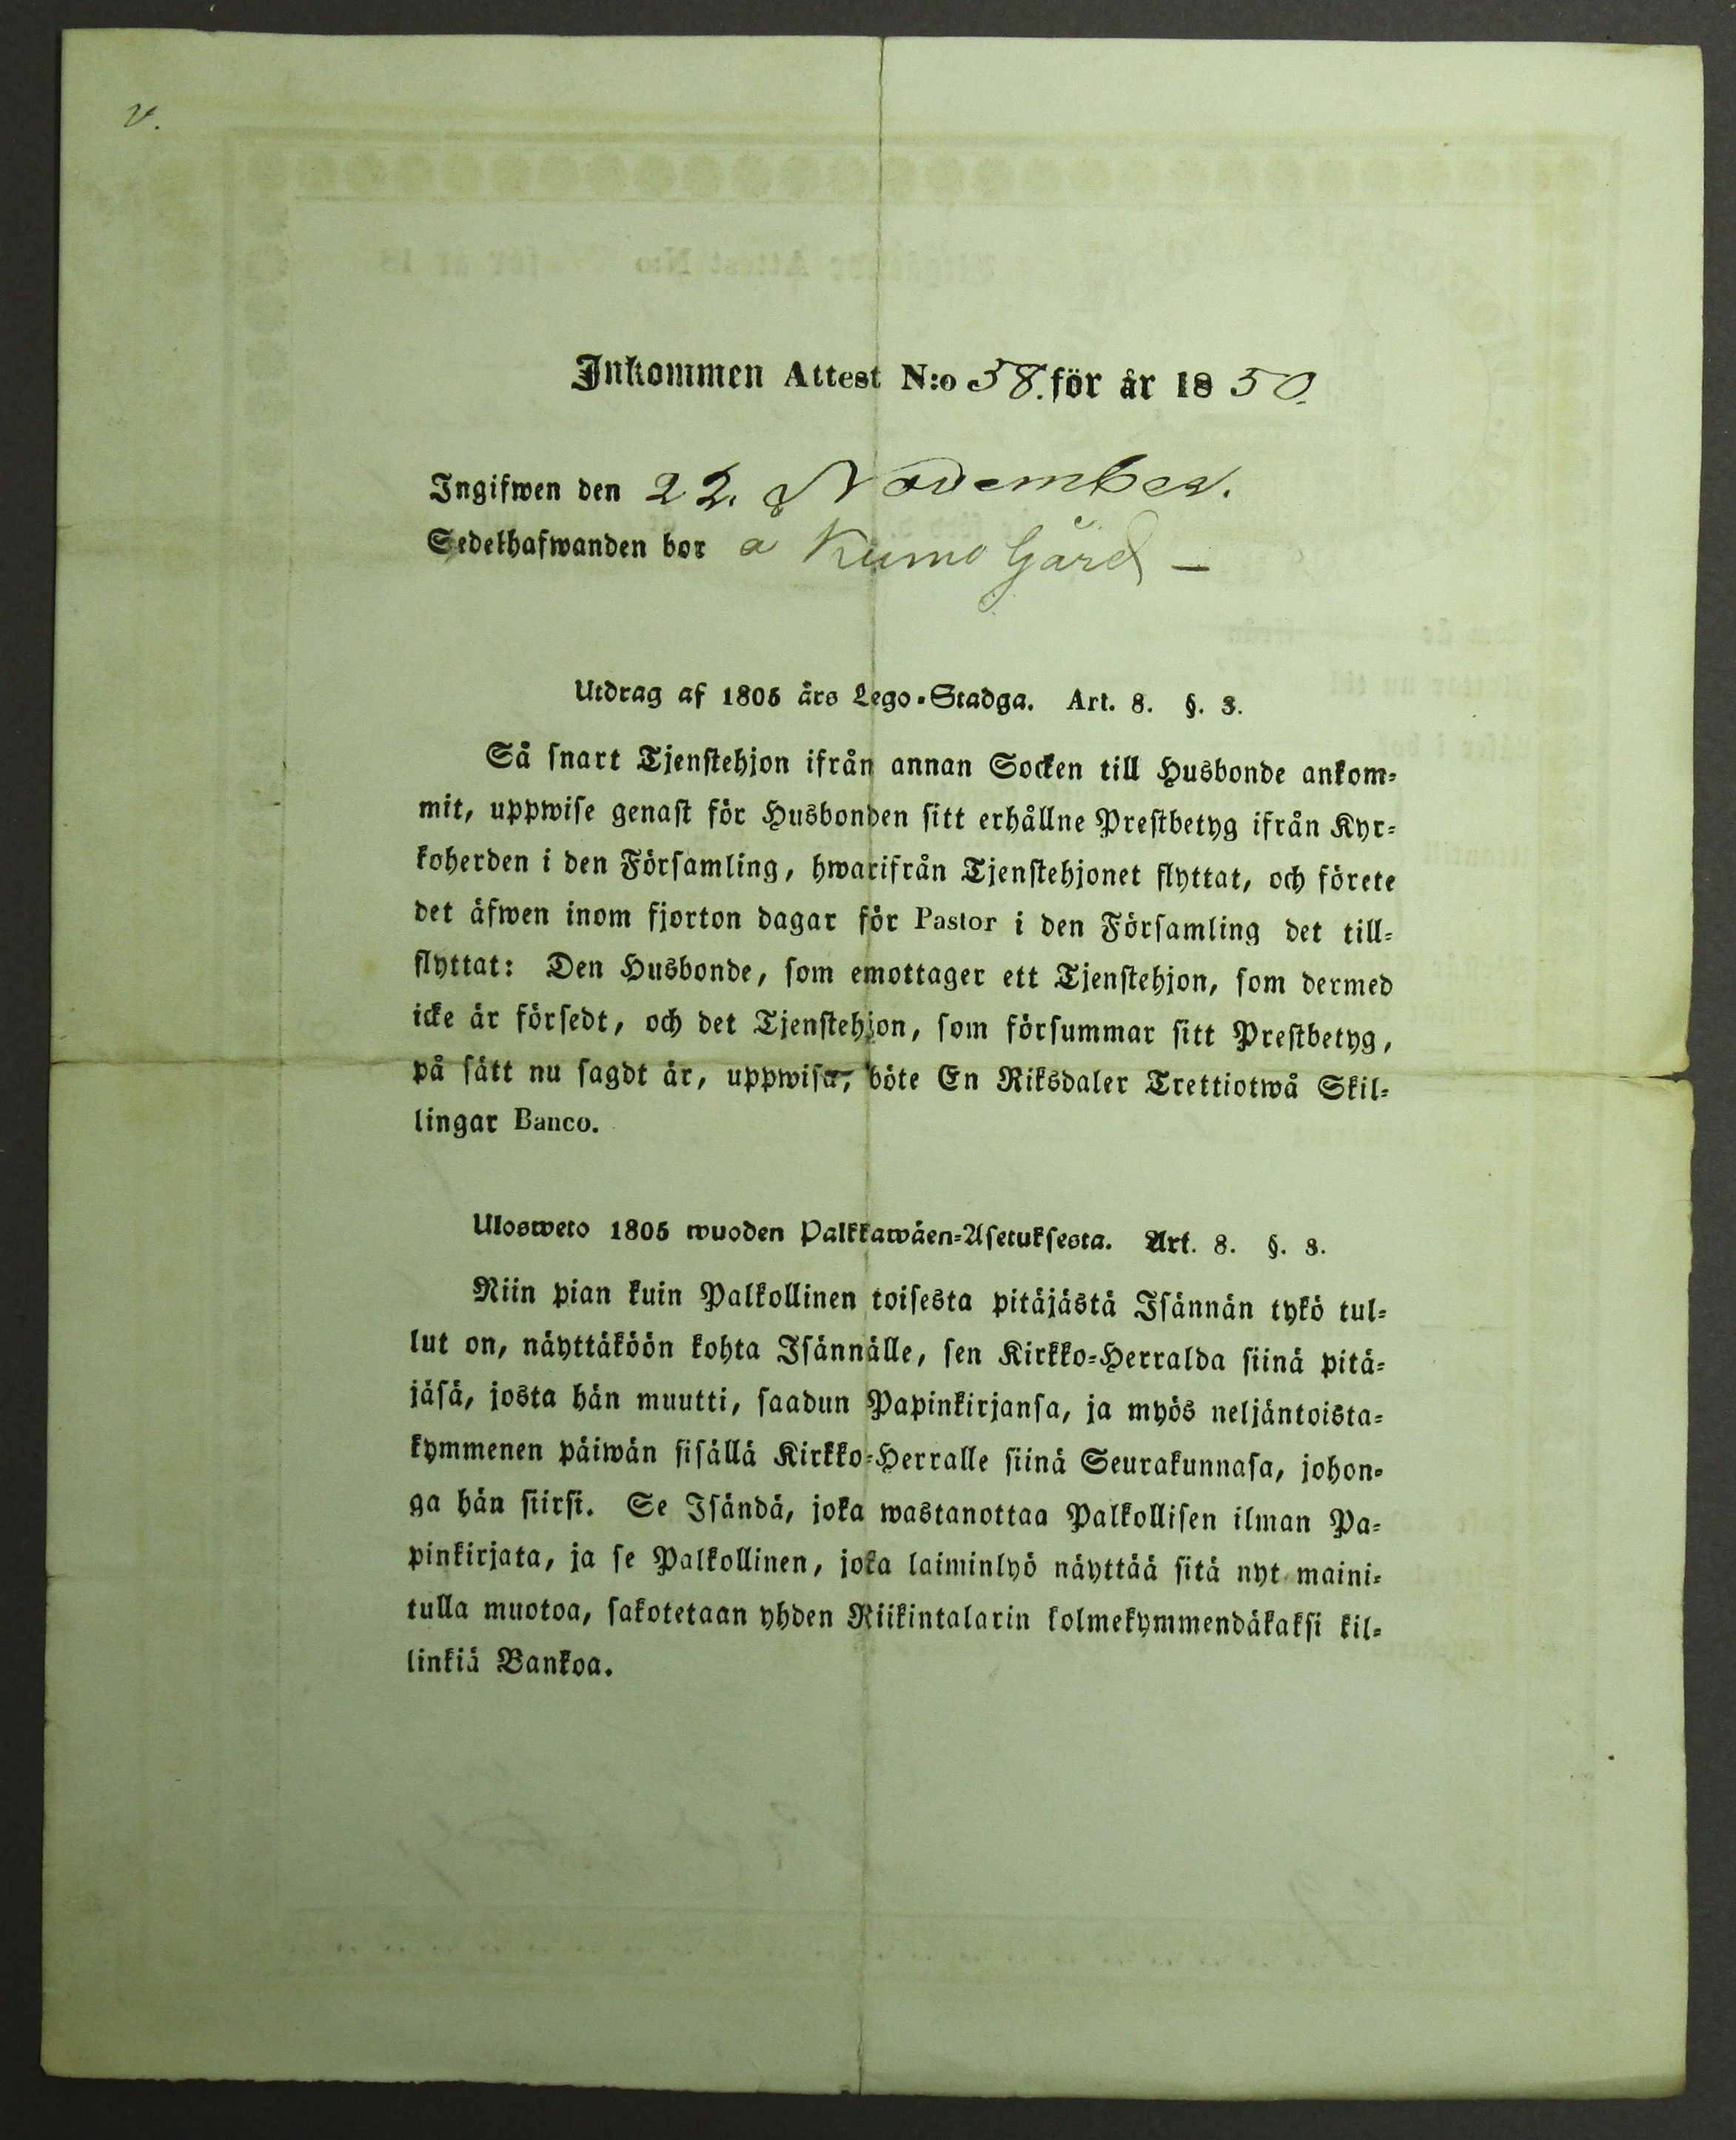 v.
Inkommen Attest N:o 58. för år 1850.
Ingifwen den 22. November.
Sedelhafwanden bor å Kumo Gård –
Utdrag af 1805 års Lego-Stadga. Art. 8. §. 3.
Så snart Tjenstehjon ifrån annan Socken till Husbonde ankom-
mit, uppwise genast för Husbonden sitt erhållne Prestbetyg ifrån Kyr-
koherden i den Församling, hwarifrån Tjenstehjonet flyttat, och förete
det äfwen inom fjorton dagar för Pastor i den Församling det till-
flyttat: Den Husbonde, som emottager ett Tjenstehjon, som dermed
icke är försedt, och det Tjenstehjon, som försummar sitt Prestbetyg,
på sätt nu sagdt är, uppwisa, böte En Riksdaler Trettiotwå Skil-
lingar Banco.
Ulosweto 1805 wuoden Palkkawäen-Asetuksesta. Art. 8. §. 3.
Niin pian kuin Palkollinen toisesta pitäjästä Isännän tykö tul-
lut on, näyttäköön kohta Isännälle, sen Kirkko-Herralda siinä pitä-
jäsä, josta hän muutti, saadun Papinkirjansa, ja myös neljäntoista-
kymmenen päiwän sisällä Kirkko-Herralle siinä Seurakunnasa, johon-
ga hän siirsi. Se Isändä, joka wastanottaa Palkollisen ilman Pa-
pinkirjata, ja se Palkollinen, joka laiminlyö näyttää sitä nyt maini-
tulla muotoa, sakotetaan yhden Riikintalarin kolmekymmendäkaksi kil-
linkiä Bankoa.